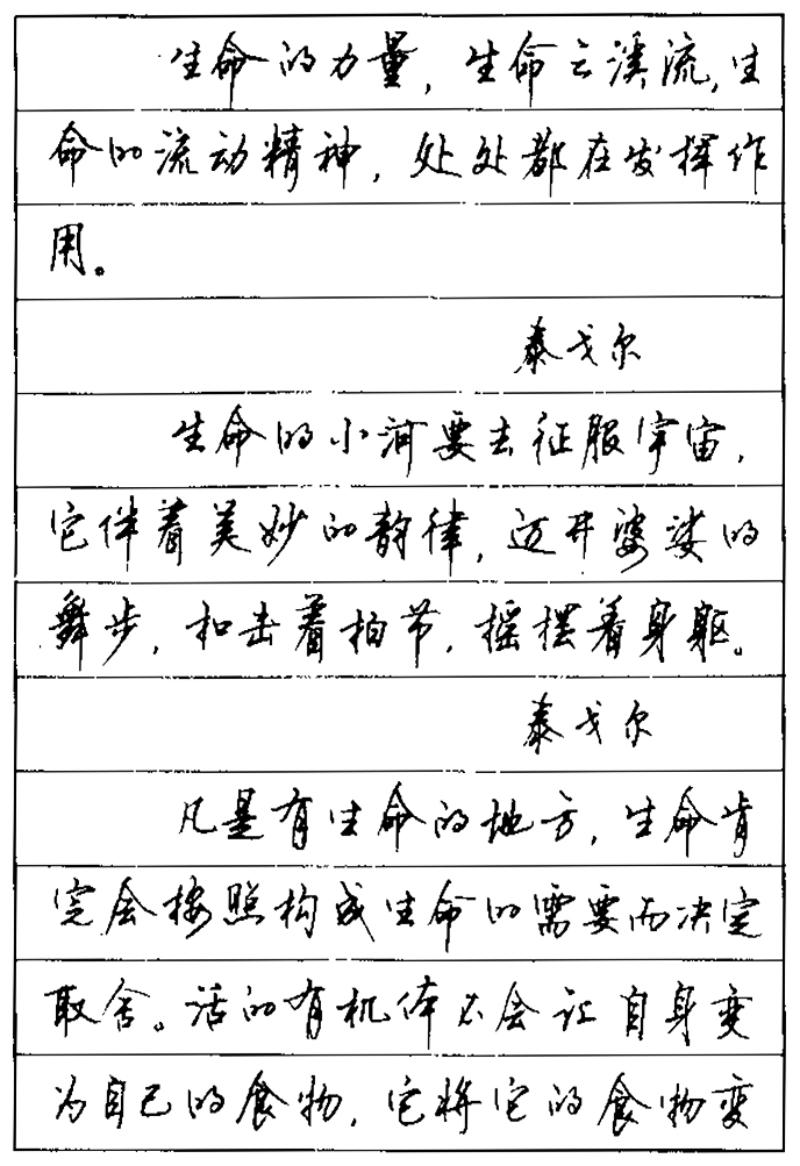 生命的力量，生命之溪流，生
命的流动精神，处处都在发挥作
用。
泰戈尔
生命的小河要去征服宇宙，
它伴着美妙的韵律，迈开婆娑的
舞步，扣击着拍节，摇摆着身躯。
泰戈尔
凡是有生命的地方，生命肯
定会按照构成生命的需要而决定
取舍。活的有机体不会让自身变
为自己的食物，它将它的食物变